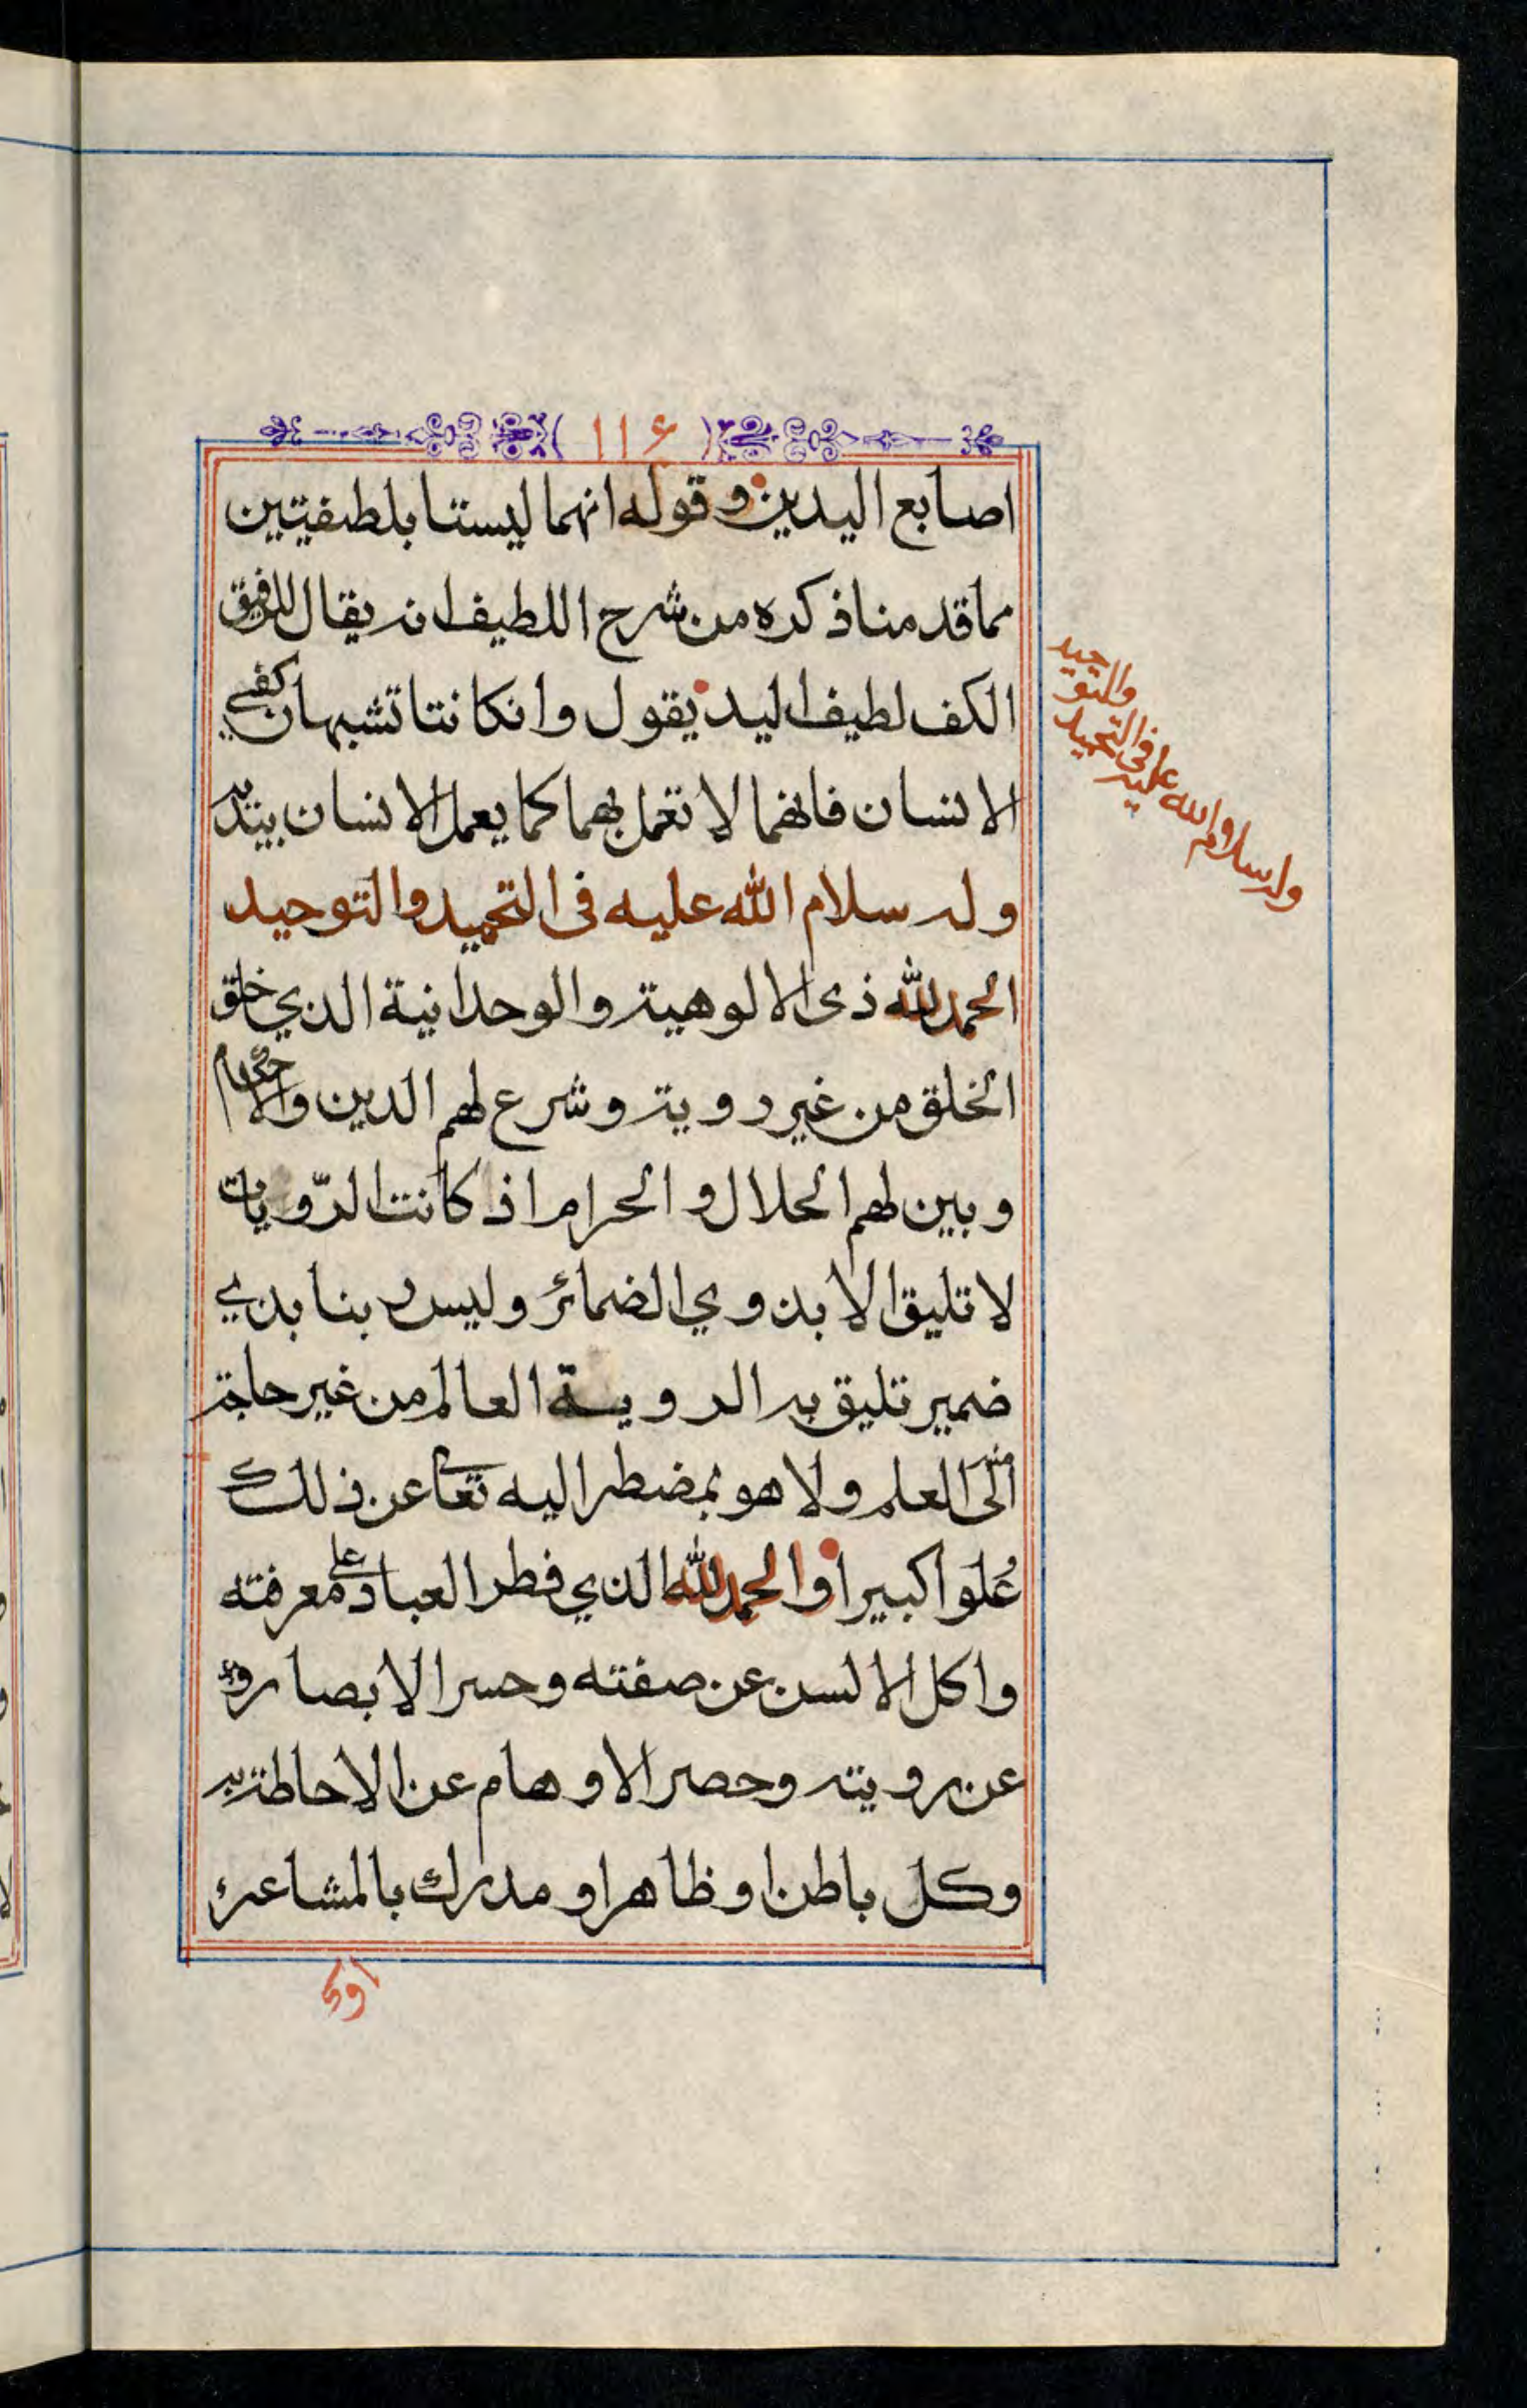 ١١٤
اصابع اليدين وقوله انهما ليستا بلطيفتين
مما قد منا ذكره من شرح اللطيف انه يقال للرفيق
الكف لطيف اليد يقول وانكانتا تشبهان كفي
الانسان فانهما لا تعمل بهما كما يعمل الانسان بيديه
وله سلام الله عليه فى التحميد والتوحيد
الحمدلله ذى الالوهية والوحدانية الذي خلق
الخلق من غير روية وشرع لهم الدين والاحكام
وبين لهم الحلال والحرام اذ كانت الرّويات
لا تليق الا بذوي الضمائر وليس ربنا بذي
ضمير تليق به الروية العالم من غير حاجة
منه الى العلم ولا هو بمضطر اليه تعا عن ذلك
عُلوا كبيرا والحمدلله الذي فطر العباد على معرفته
واكل الالسن عن صفته وحسر الابصار
عن رويته وحصر الاوهام عن الاحاطة به
وكل باطن او ظاهر او مدرك بالمشاعر
وله سلام الله عليه فى التحميد
والتوحيد